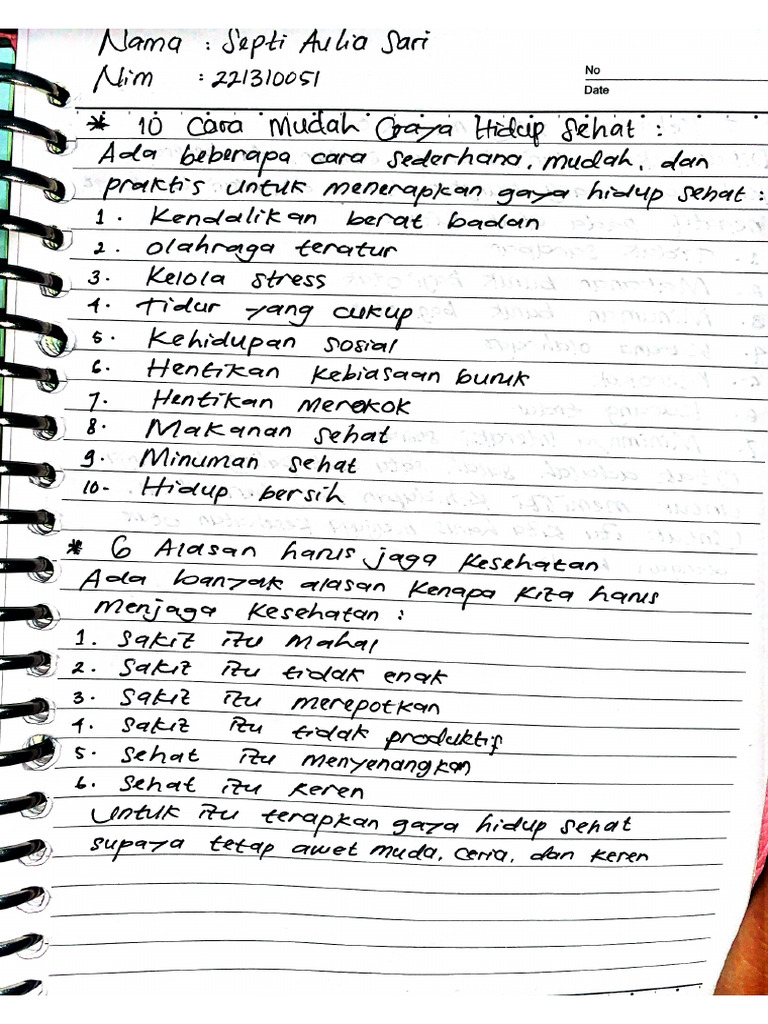 Nama : Septi Aulia Sari
Nim : 221310051
No
Date
* 10 Cara Mudah Gaya Hidup Sehat :
Ada beberapa cara sederhana, mudah, dan
praktis untuk menerapkan gaya hidup sehat :
1. Kendalikan berat badan
2. Olahraga teratur
3. Kelola stress
4. Tidur yang cukup
5. Kehidupan sosial
6. Hentikan kebiasaan buruk
7. Hentikan merokok
8. Makanan sehat
9. Minuman sehat
10. Hidup bersih
* 6 Alasan harus jaga kesehatan
Ada banyak alasan kenapa kita harus
menjaga kesehatan :
1. Sakit itu mahal
2. Sakit itu tidak enak
3. Sakit itu merepotkan
4. Sakit itu tidak produktif
5. Sehat itu menyenangkan
6. Sehat itu keren
Untuk itu terapkan gaya hidup sehat
supaya tetap awet muda, ceria, dan keren